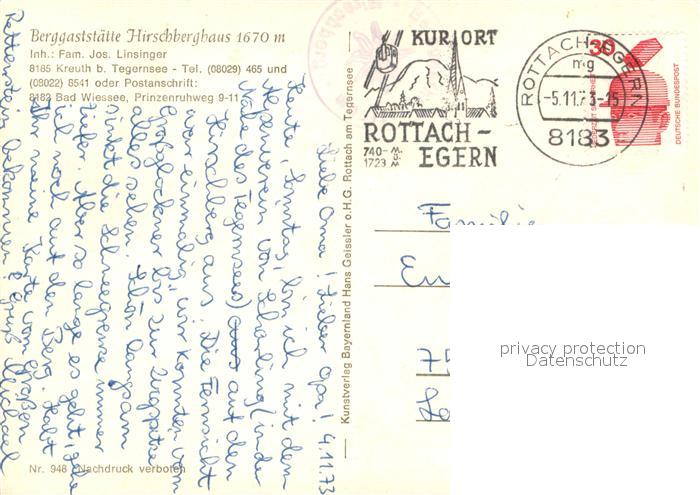 Berggaststätte Hirschberghaus 1670 m
Inh.: Fam. Jos. Linsinger
8185 Kreuth b. Tegernsee - Tel. (08029) 465 und
(08022) 8541 oder Postanschrift:
8182 Bad Wiessee, Prinzenruhweg 9-11
4.11.73
Liebe Oma! Lieber Opa!
Heute, Sonntag, bin ich mit dem
Alpenverein von (in der
Nähe des Tegernsees) auf den
Hirschberg aus. Die Fernsicht
war einmalig wir konnten vom
Großglockner bis zur Zugspitze
alles sehen. Langsam
sinkt die Schneegrenze immer
tiefer. Aber so lange es geht, gehe
ich noch auf den Berg. Habt
Ihr meine Karte vom Großen
Rettenstein bekommen? Gruß Michael
Nr. 948 Nachdruck verboten
Kunstverlag Bayernland Hans Geissler o.H.G. Rottach am Tegernsee
KURORT
ROTTACH-
EGERN
740-
1723
ROTTACH-EGERN
mg
-5.11.73-15
8183
30
DEUTSCHE BUNDESPOST
Familie
privacy protection
Datenschutz